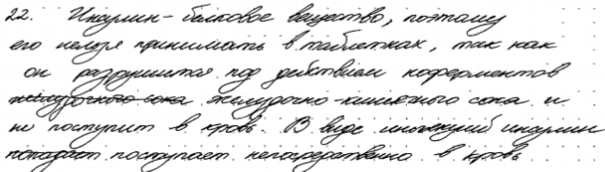 22. Инсулин - белковое вещество, поэтому
его нельзя принимать в таблетках, так как
он разрушится под действием коферментов
желудочного сока желудочно-кишечного сока и
не поступит в кровь. В виде инъекций инсулин
попадает поступает непосредственно в кровь